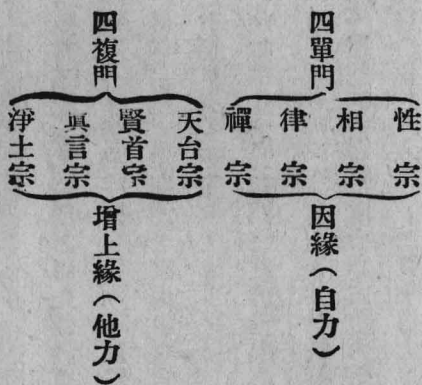 四單門
性宗
相宗
律宗
禪宗
因緣(自力)
四複門
天台宗
賢首宗
眞言宗
淨土宗
增上緣(他力)